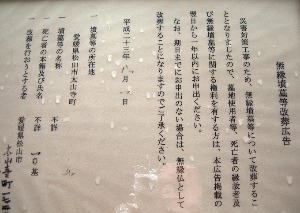 無縁墳墓等改葬広告
災害対策工事のため、無縁墳墓等について改葬するこ
ととなりましたので、墓地使用者等、死亡者の縁故者及
び無縁墳墓等に関する権利を有する方は、本広告掲載の
翌日から一年以内にお申出ください。
なお、期日までにお申出のない場合は、無縁仏として
改葬することになりますのでご了承ください。
平成二十三年 月 日
一 墳墓等の所在地
愛媛県松山市太山寺町
一 墳墓等の名称 不詳 一〇基
一 死亡者の本籍及び氏名 不詳
一 改葬を行おうとする者 愛媛県松山市
太山寺町